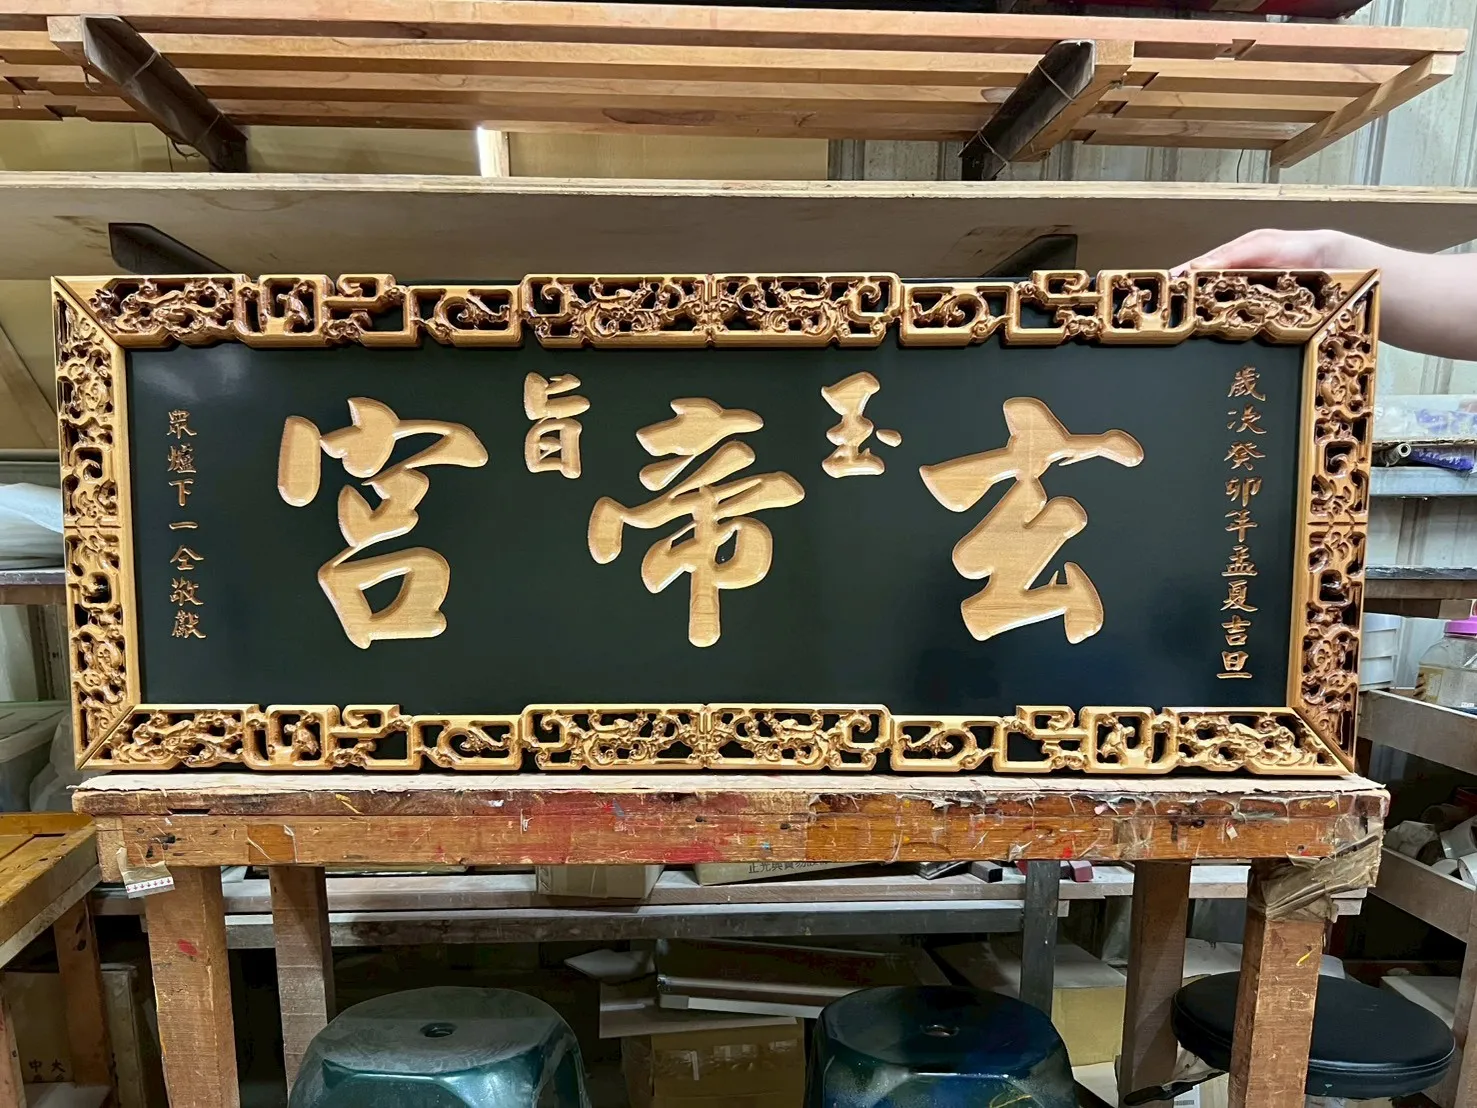 玉旨
玄帝宮
歲次癸卯年孟夏吉旦
眾爐下一仝敬獻